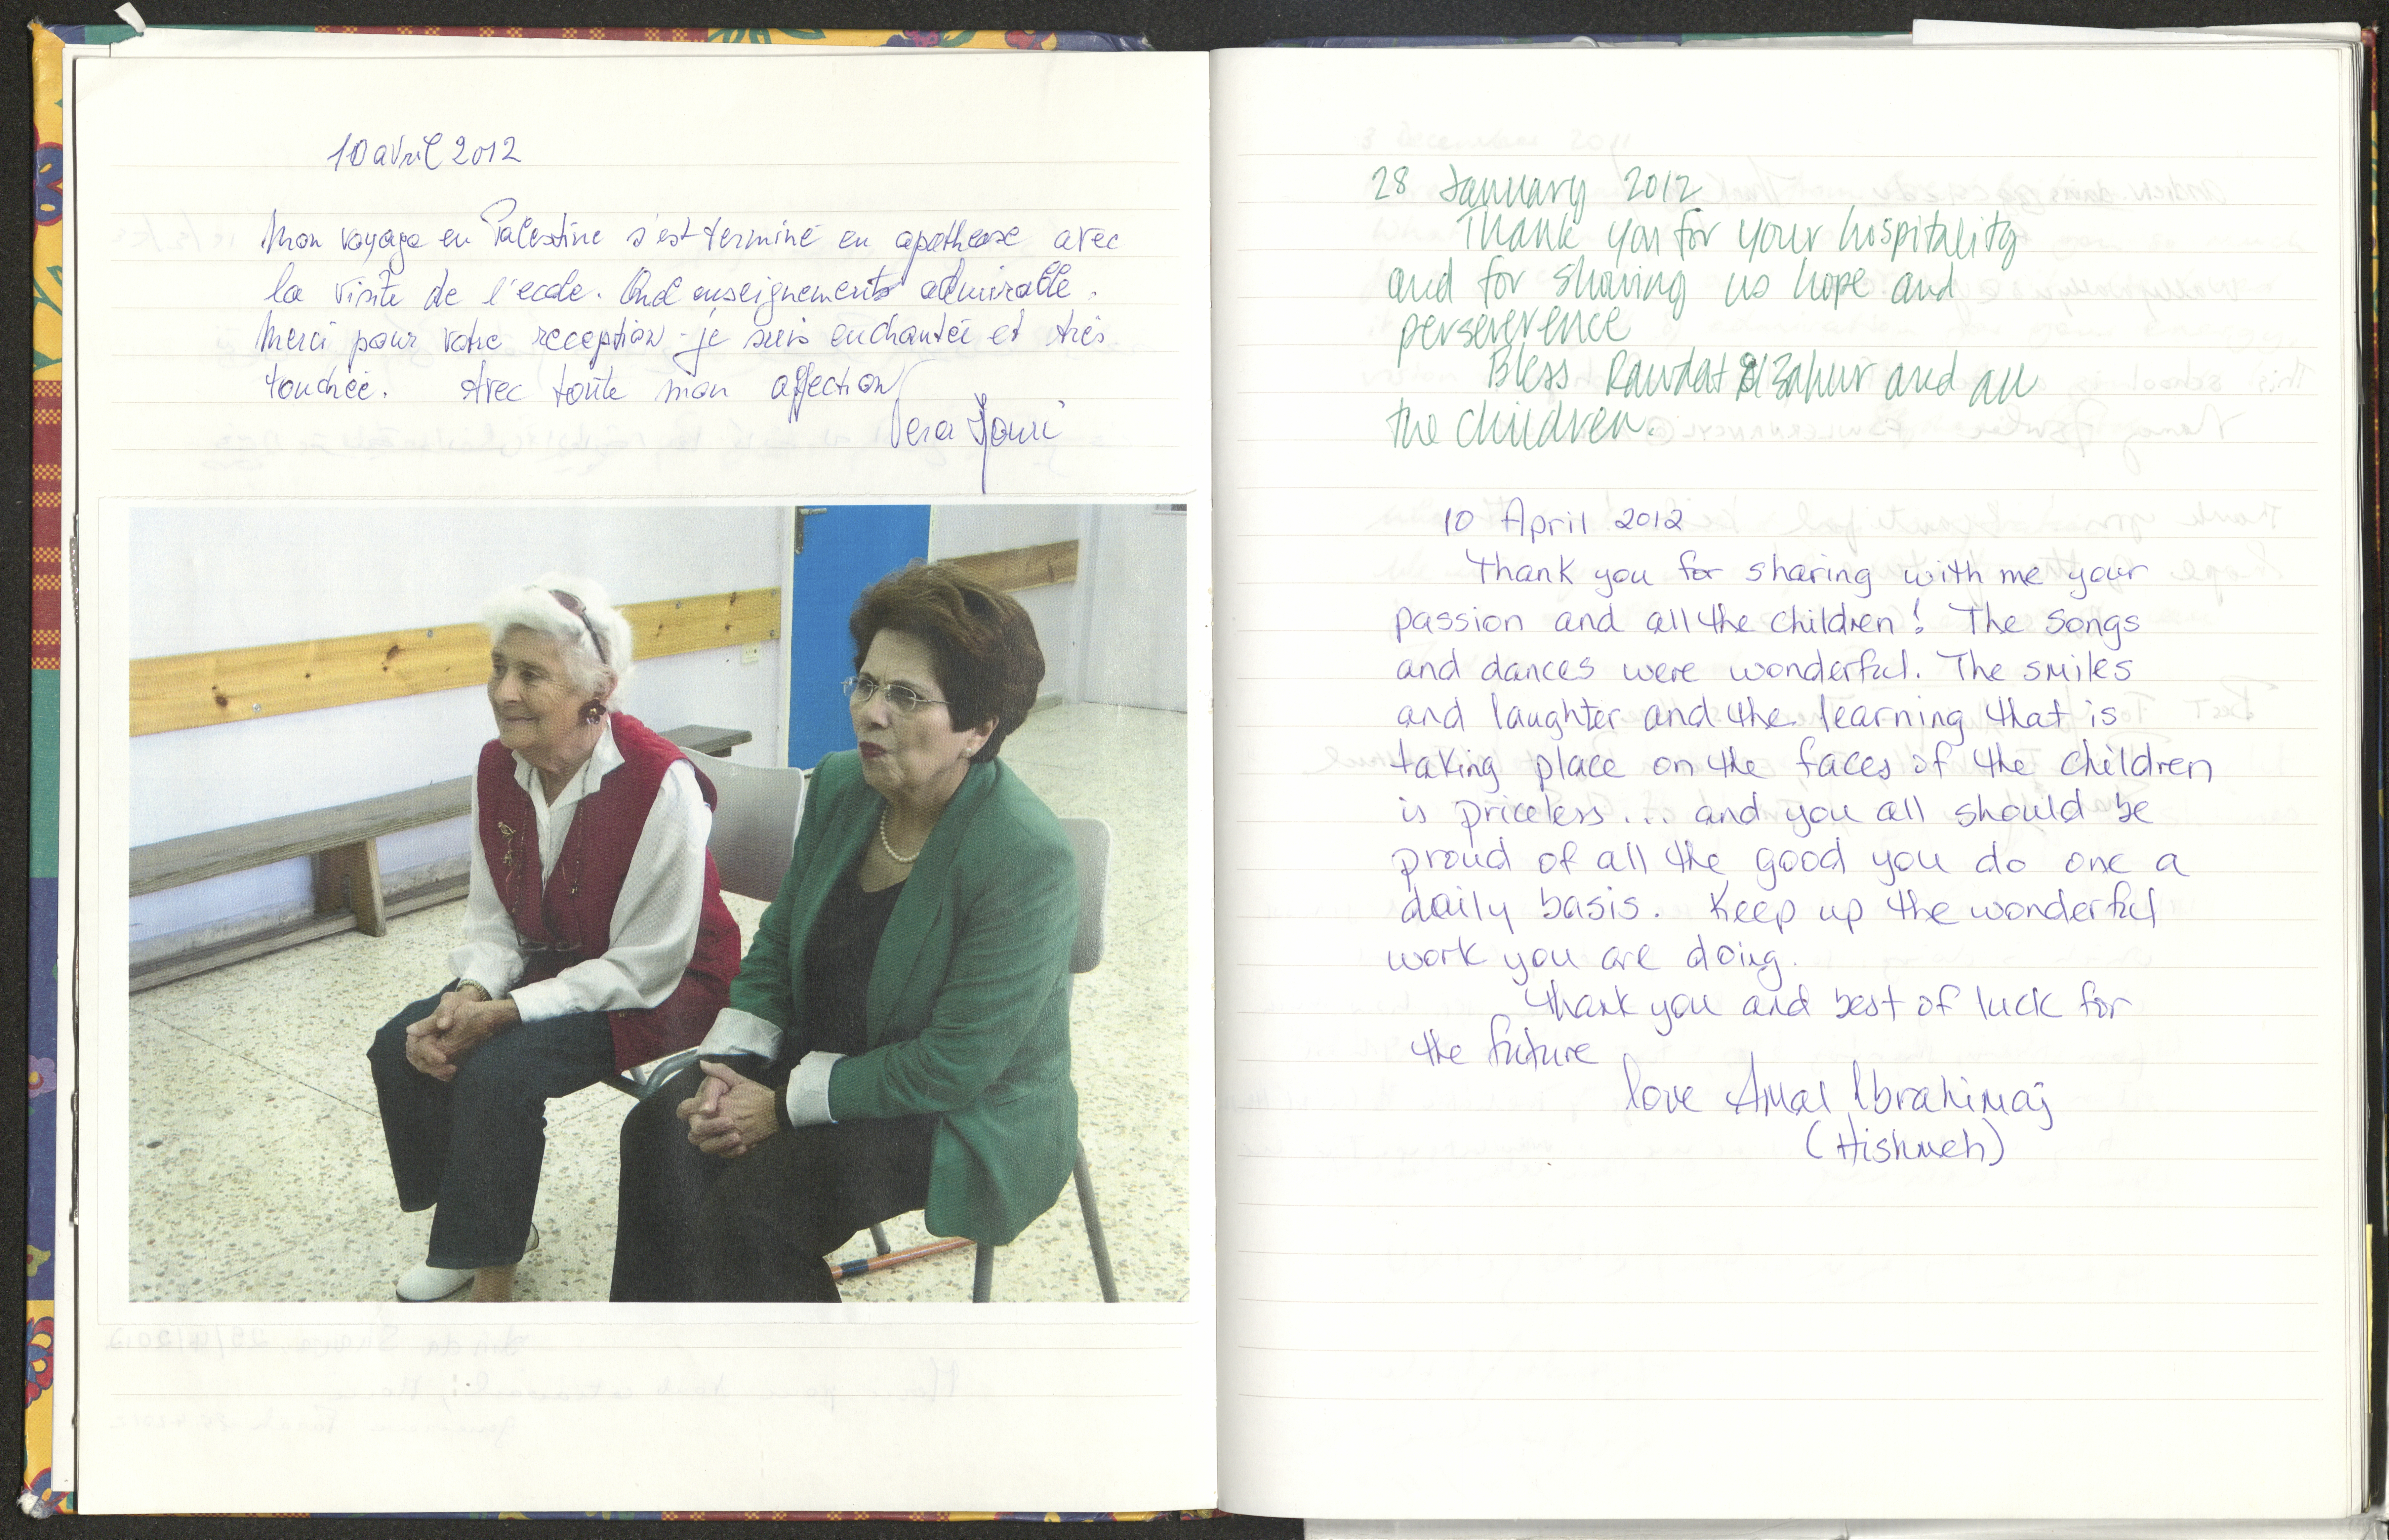 10 avril 2012
Mon voyage en Palestine s'est terminé en apothease avec
la visite de l'ecole. enseignements admirable.
Merci pour votre reception - je suis enchantée et très
touchée. Avec toute mon affection
Vera
28 January 2012
Thank you for your hospitality
and for showing us hope and
perseverence
Bless Rawdat El Zahur and all
the children.
10 April 2012
Thank you for sharing with me your
passion and all the children! The songs
and dances were wonderful. The smiles
and laughter and the learning that is
taking place on the faces of the children
is priceless... and you all should be
proud of all the good you do one a
daily basis. Keep up the wonderful
work you are doing.
Thank you and best of luck for
the future
love Amal Ibrahimaj
(Hishmeh)